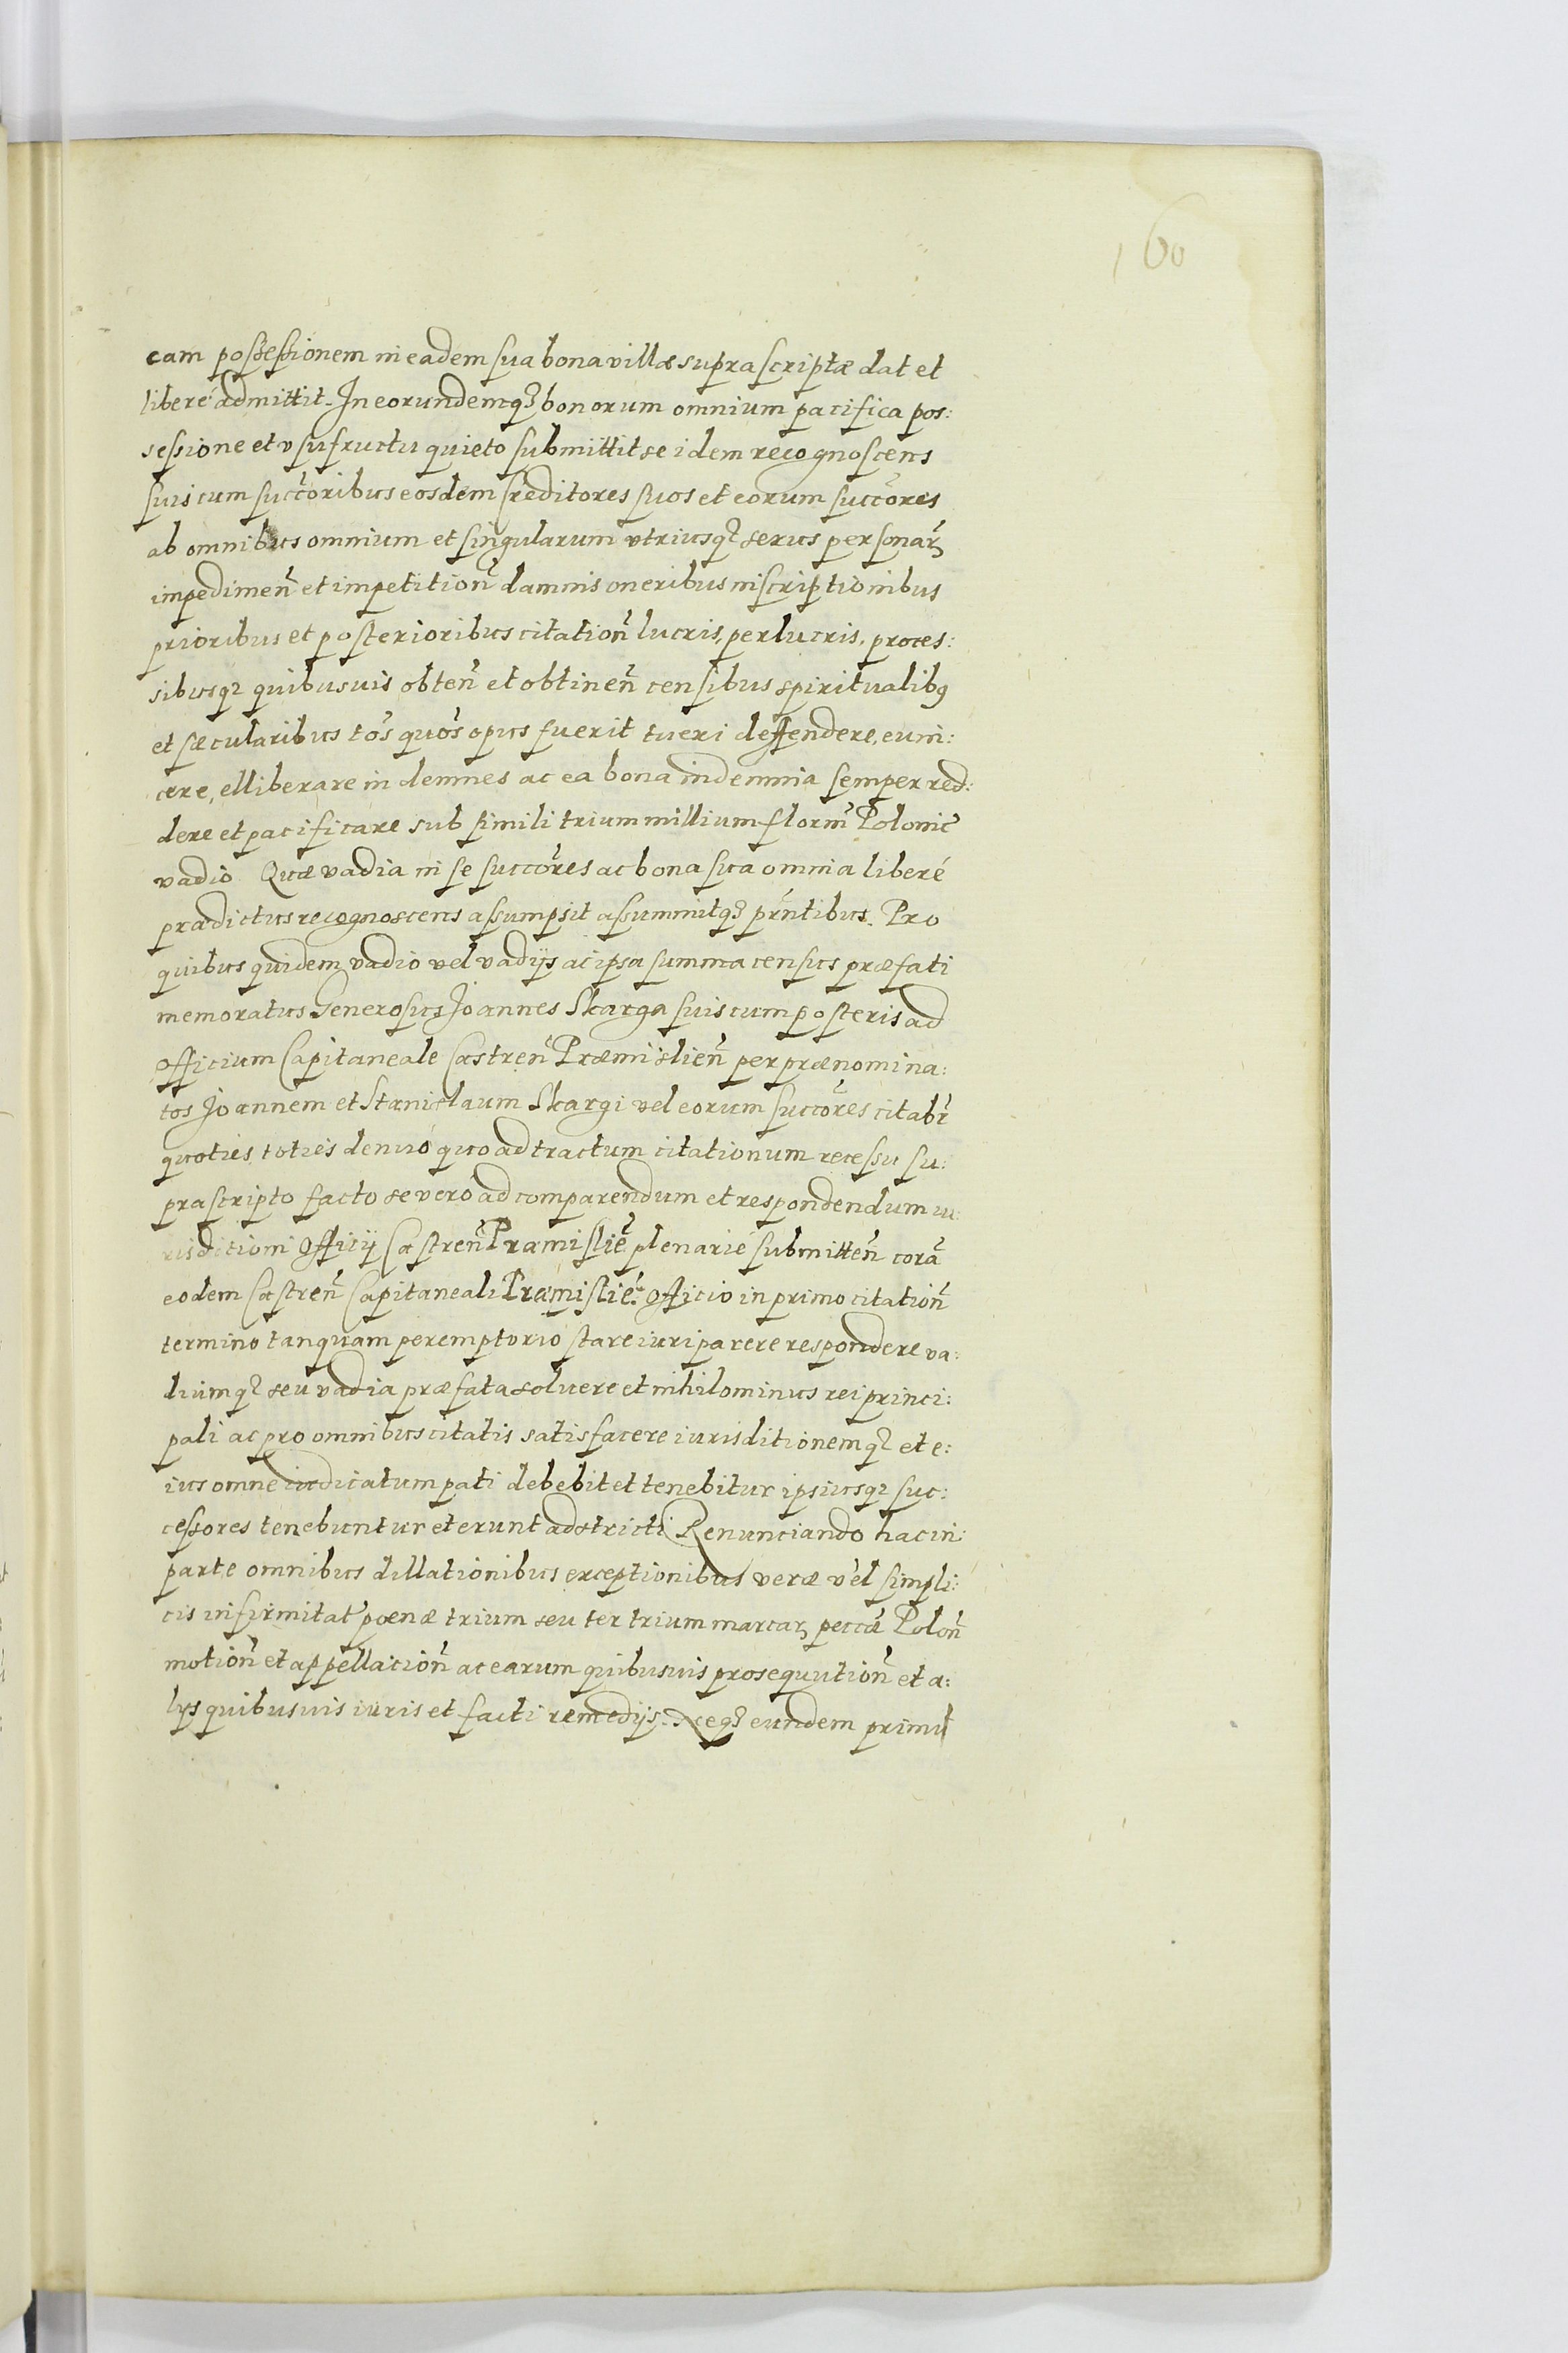 160
cam possessionem in eadem sua bona villæ suprascriptæ dat et
liberé admittit. In eorundemq₃ bonorum omnium pacifica pos:
sessione et vsufructu quieto submittit se idem recognoscens
suis cum succ̃oribus eosdem Creditores suos et eorum succõres
ab omnibus omnium et singularum vtriusq₃ sexus personaꝝ
impedimeñ et impetitioñ damnis oneribus inscriptionibus
prioribus et posterioribus citatioñ lucris, perlucris, proces:
sibusq₃ quibusuis obteñ et obtineñ censibus spiritualibꝰ
et sæcularibus tõs quõs opus fuerit tueri deffendere, euin:
cere, elliberare indemnes ac ea bona indemnia semper red:
dere et pacificare sub simili trium millium floreñ Polonic̃
vadio Quæ vadia in se succõres ac bona sua omnia liberé
prædictus recognoscens assumpsit assummitq₃ pr̃ntibus. Pro
quibus quidem vadio vel vadijs ac ipsa summa census præfati
memoratus Generosus Joannes Skarga suis cum posteris ad
Officium Capitaneale Castreñ Præmislieñ per prænomina:
tos Joannem et Stanislaum Skargi vel eorum succõres citabr̃
quoties, toties denuó quo ad tractum citationum recessu su:
prascripto facto se vero ad comparendum et respondendum iu:
risditioni Officij Castreñ Præmisliẽ plenarié submitteñ corã
eodem Castreñ Capitaneali Præmisliẽ. Officio in primo citatioñ
termino tanquam peremptorio stare iuri parere respondere va:
diumq₃ seu vadia præfata soluere et nihilominus rei princi:
pali ac pro omnibus citatis satisfacere iurisditionemq₃ et e:
ius omne iudicatum pati debebit et tenebitur ipsiusq₃ suc:
cessores tenebuntur et erunt adstricti Renunciando hac in:
parte omnibus dillationibus exceptionibus veræ vel simpli:
cis infirmitat̃ pœnæ trium seu ter trium marcaꝝ peccũ Poloñ
motioñ et appellacioñ ac earum quibusuis prosequutioñ et a:
lijs quibusuis iuris et facti remedijs. Neq₃ eundem primũ